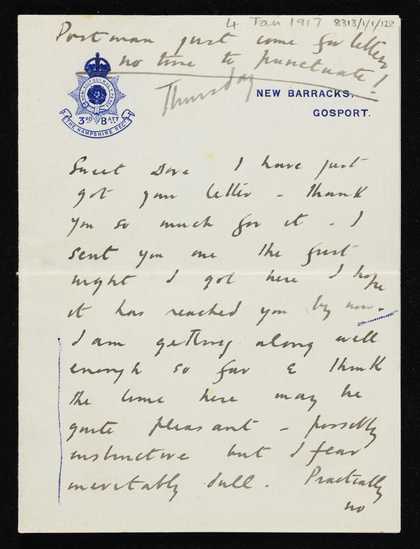 4 Jan 1917 8313/1/1/122
Postman just come for letters
no time to punctuate!
Thursday
3RD BATT
THE HAMPSHIRE REGT
NEW BARRACKS,
GOSPORT.
Sweet Dove I have just
got your letter - Thank
you so much for it - I
sent you one the first
night I got here I hope
it has reached you by now.
I am getting along well
enough so far & think
the time here may be
quite pleasant - possibly
instinctive but I fear
inevitably dull. Practically
no